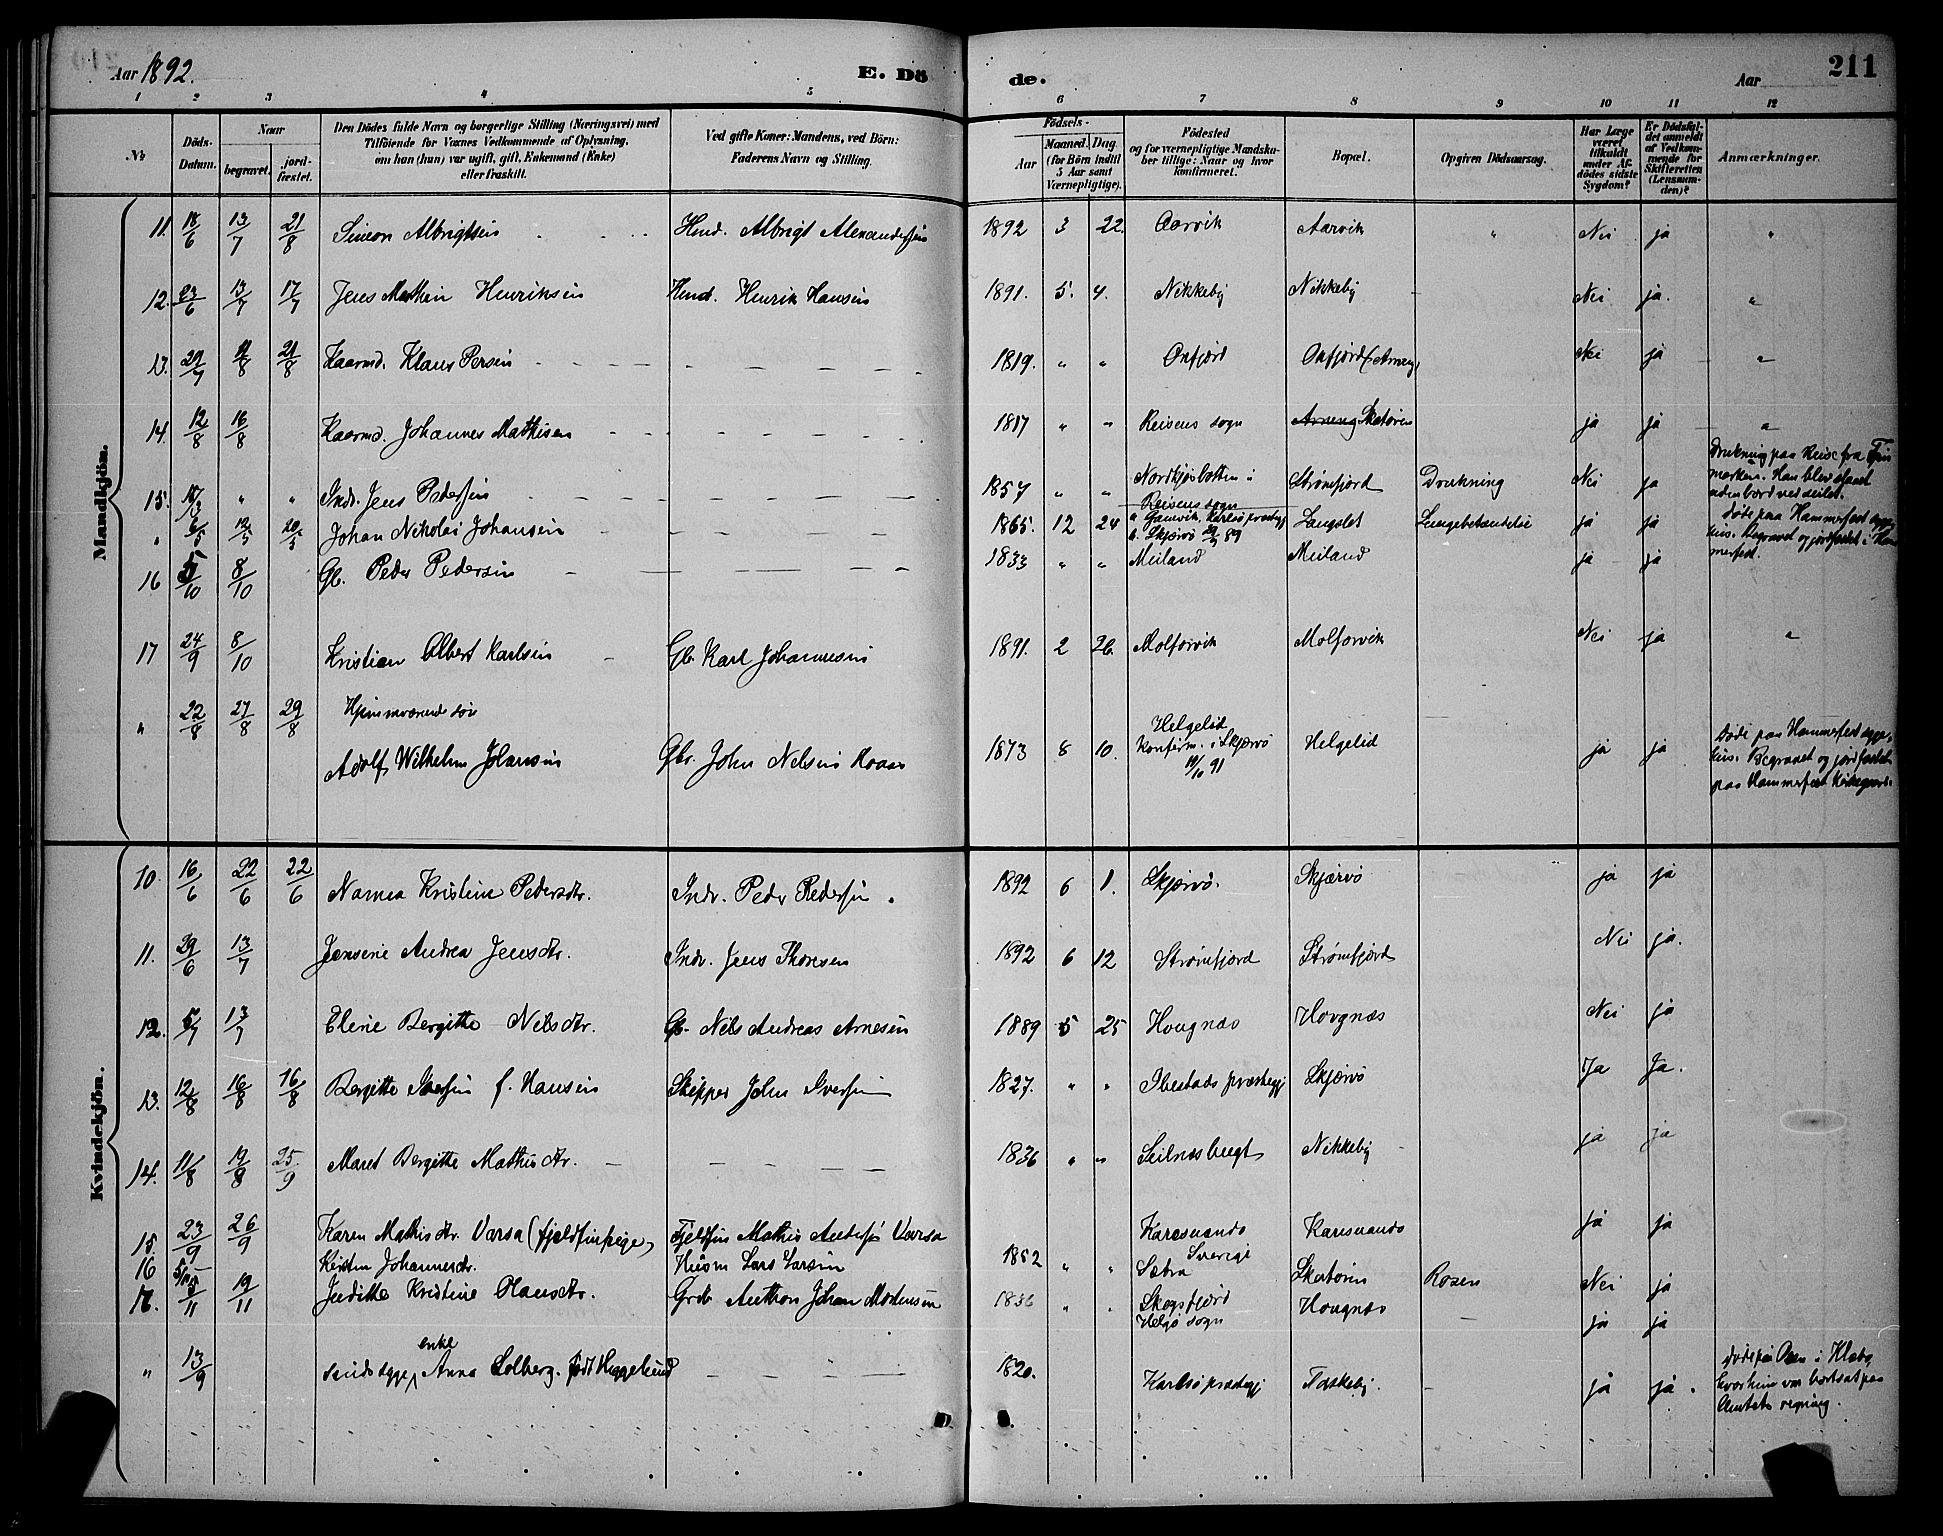 Aar 1892. E. Dö de. Aar 211
1 2 3 4 5 6 7 8 9 10 11 12
No Döds-Datum. Naar begravet. jordfæstet. Den Dödes fulde Navn og borgerlige Stilling (Næringsvei) med Tilföiende for Voxnes Vedkommende af Oplysning, om han (hun) var ugift, gift, Enkemand (Enke) eller fraskilt. Ved gifte Koner: Mandens, ved Börn: Faderens Navn og Stilling. Födsels- Aar Maaned. Dag. (for Börn indtil 5 Aar samt Værnepligtige). Födested og for værnepligtige Mandskaber tillige: Naar og hvor konfirmeret. Bopæl. Opgiven Dödsaarsag. Har Læge været tilkaldt under Afdödes sidste Sygdom? Er Dödsfaldet anmeldt af Vedkommende for Skifteretten (Lensmanden)? Anmærkninger.
Mandkjön.
11. 18/6 13/7 21/8 Simon Albrigtsen Hmd. Albrigt Alexandersen 1892 3 22. Aarvik Aarvik " Nei ja "
12. 23/6 13/7 17/7 Jens Mathin Henriksen Hmd. Henrik Hansen 1891. 5. 4. Nikkeby Nikkeby Nei ja. "
13. 29/7 21/8 Kaarmd. Klaus Persen 1819. " " Oxfjord Oxfjord (Arnøy) Nei ja "
14. 12/8 16/8 Kaarmd. Johannes Mathisen 1817 " " Reisens sogn Arnøng Skatøren ja ja "
15. 17/3 " " Indr. Jens Pedersen 1857 " " Nordkjosbotten i Reisens sogn Strømfjord Drukning Nei ja Drukning paa Reise fra Finmerken. Han blev slaaet udenbord ved seilet.
" 6/5 12/5 20/5 Johan Nikolai Johansen 1865. 12 24 " Gamvik, Karlsø præstegj k. Skjervø 89 Langslet Lungebetændelse ja ja Døde paa Hammerfest sygehus. Begravet og jordfæstet i Hammerfest.
16 5/10 8/10 Gb. Peder Pedersen 1833 " " Meiland Meiland ja ja
17 24/9 8/10 Kristian Albert Karlsen Gb. Karl Johannesen 1891. 2 26. Molforvik Molforvik Nei ja "
" 22/8 27/8 29/8 Hjemmværende søn
Adolf Wilhelm Johansen Gbr. John Nelsen Koaas 1873 8 10. Helgelid Konfirm. i Skjærvø 91 Helgelid ja ja Døde paa Hammerfest sygehus. Begravet og jordfæstet paa Hammerfest Kirkegaard.
Kvindekjön.
10. 16/6 22/6 22/6 Narnea Kristine Pedersdtr. Indr. Peder Pedersen. 1892 6 1. Skjærvö. Skjærvö ja ja
11. 29/6 13/7 Jensine Andrea Jensdtr. Indr. Jens Thoresen 1892 6 12 Strømfjord Strømfjord Nei ja.
12. 5/7 13/7 Elene Bergitte Nelsdtr. Gb. Nels Andreas Arnesen 1889 5 25 Hougnæs Hovgnæs Nei ja
13. 12/8 16/8 16/8 Bergitte Iversen f. Hansen Skipper John Iversen 1827. " " Ibestads præstegj Skjærvö Ja Ja.
14. 11/8 19/8 25/9 Maret Bergitte Mathisdtr. 1836 " " Seilnesbugt Nikkeby ja ja
15. 23/9 26/9 Karen Mathisdtr. Varsa (fjeldfinpige) Fjeldfin Mathis Andersen Varsa 1852 " " Karesuando Sverige Karesuando ja ja
16 Kirsten Johannesdtr. Husm Lars Larsen Sætra Skatøren Rosen Nei ja
17. 5/11 19/11 Juditte Kristine Hansdtr. Grdb Anthon Johan Mortensen 1836 " " Skogsfjord Helgø sogn Hougnæs ja ja
" 13/9 sindssyge enke Anna Solberg. født Heggelund 1820. Karlsø præstegj Taskeby. ja ja. Døde paa Rosen i Klæbo, hvor hun var bortsat paa Amtets regning.